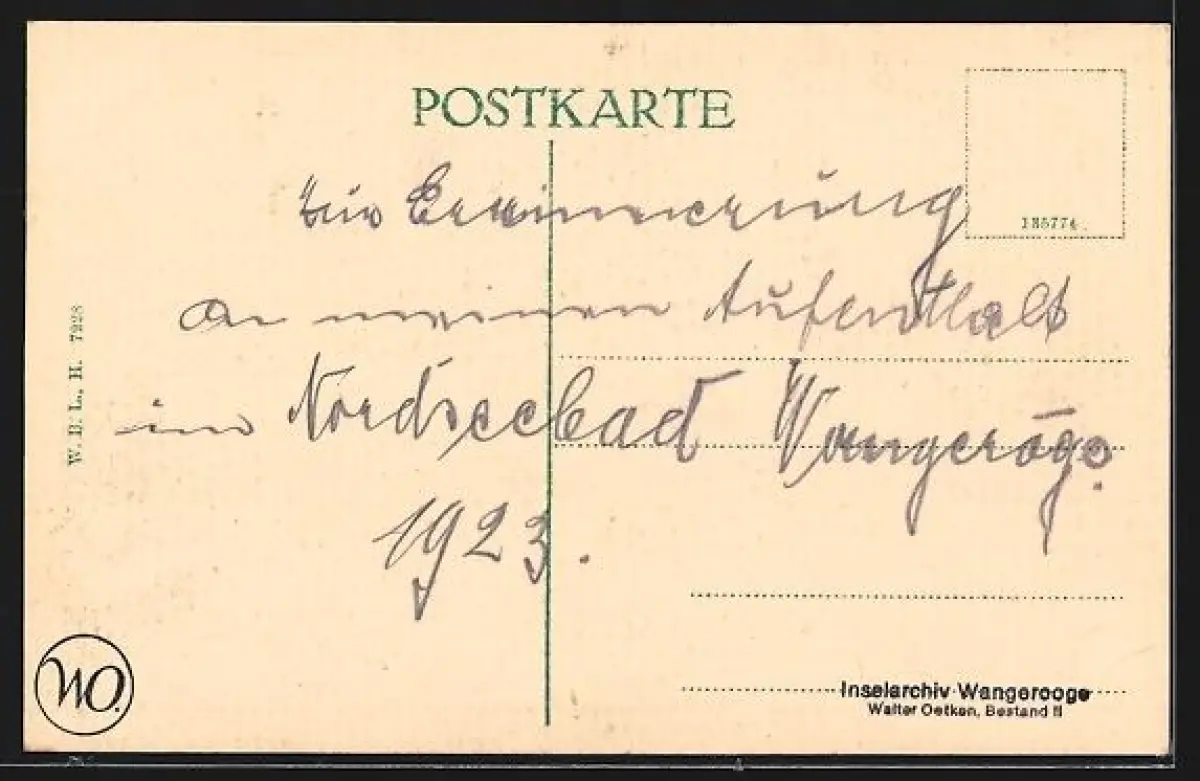 POSTKARTE
135774
Zur Erinnerung
an meinen Aufenthalt
im Nordseebad Wangeroge.
1923.
W. B. L., H. 7228
WO.
Inselarchiv Wangerooge
Walter Oetken, Bestand II